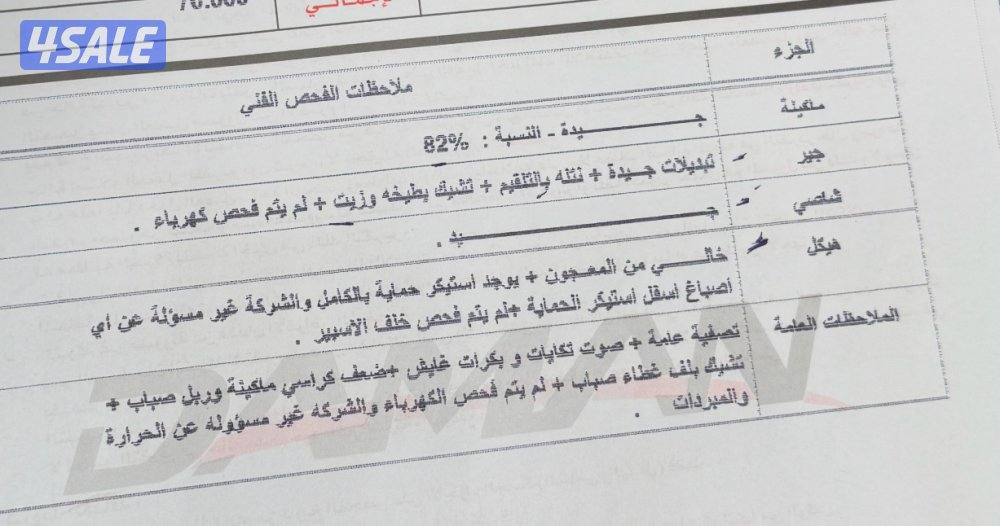 4SALE
70.000
الإجمالي
الجزء
ملاحظات الفحص الفني
ماكينة
جـــــــيدة - النسبة : 82%
جير
تبديلات جيدة + نتله بالتلقيم + تشيك بطيخه وزيت + لم يتم فحص كهرباء .
شاصي
جـــــــيد .
هيكل
خالـــي من المعجون + يوجد استيكر حماية بالكامل والشركة غير مسؤلة عن اي
اصباغ اسفل استيكر الحماية +لم يتم فحص خلف الاسبير .
الملاحظات العامة
تصفية عامة + صوت تكايات و بكرات قايش +ضعف كراسي ماكينة وربل صباب +
تشيك بلف غطاء صباب + لم يتم فحص الكهرباء والشركه غير مسؤوله عن الحرارة
والمبردات .
DAMAN